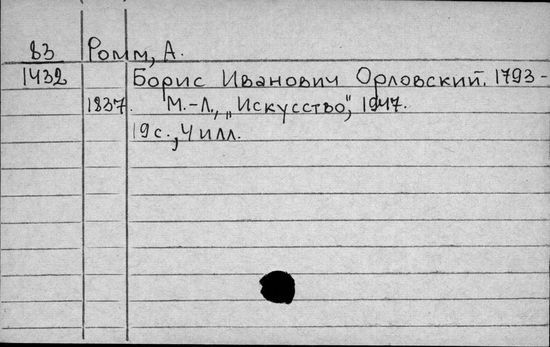 83 Ромм, А.
1432 Борис Иванович Орловский. 1793-
1837. М.-Л., „Искусство", 1947.
19 с., 4 илл.